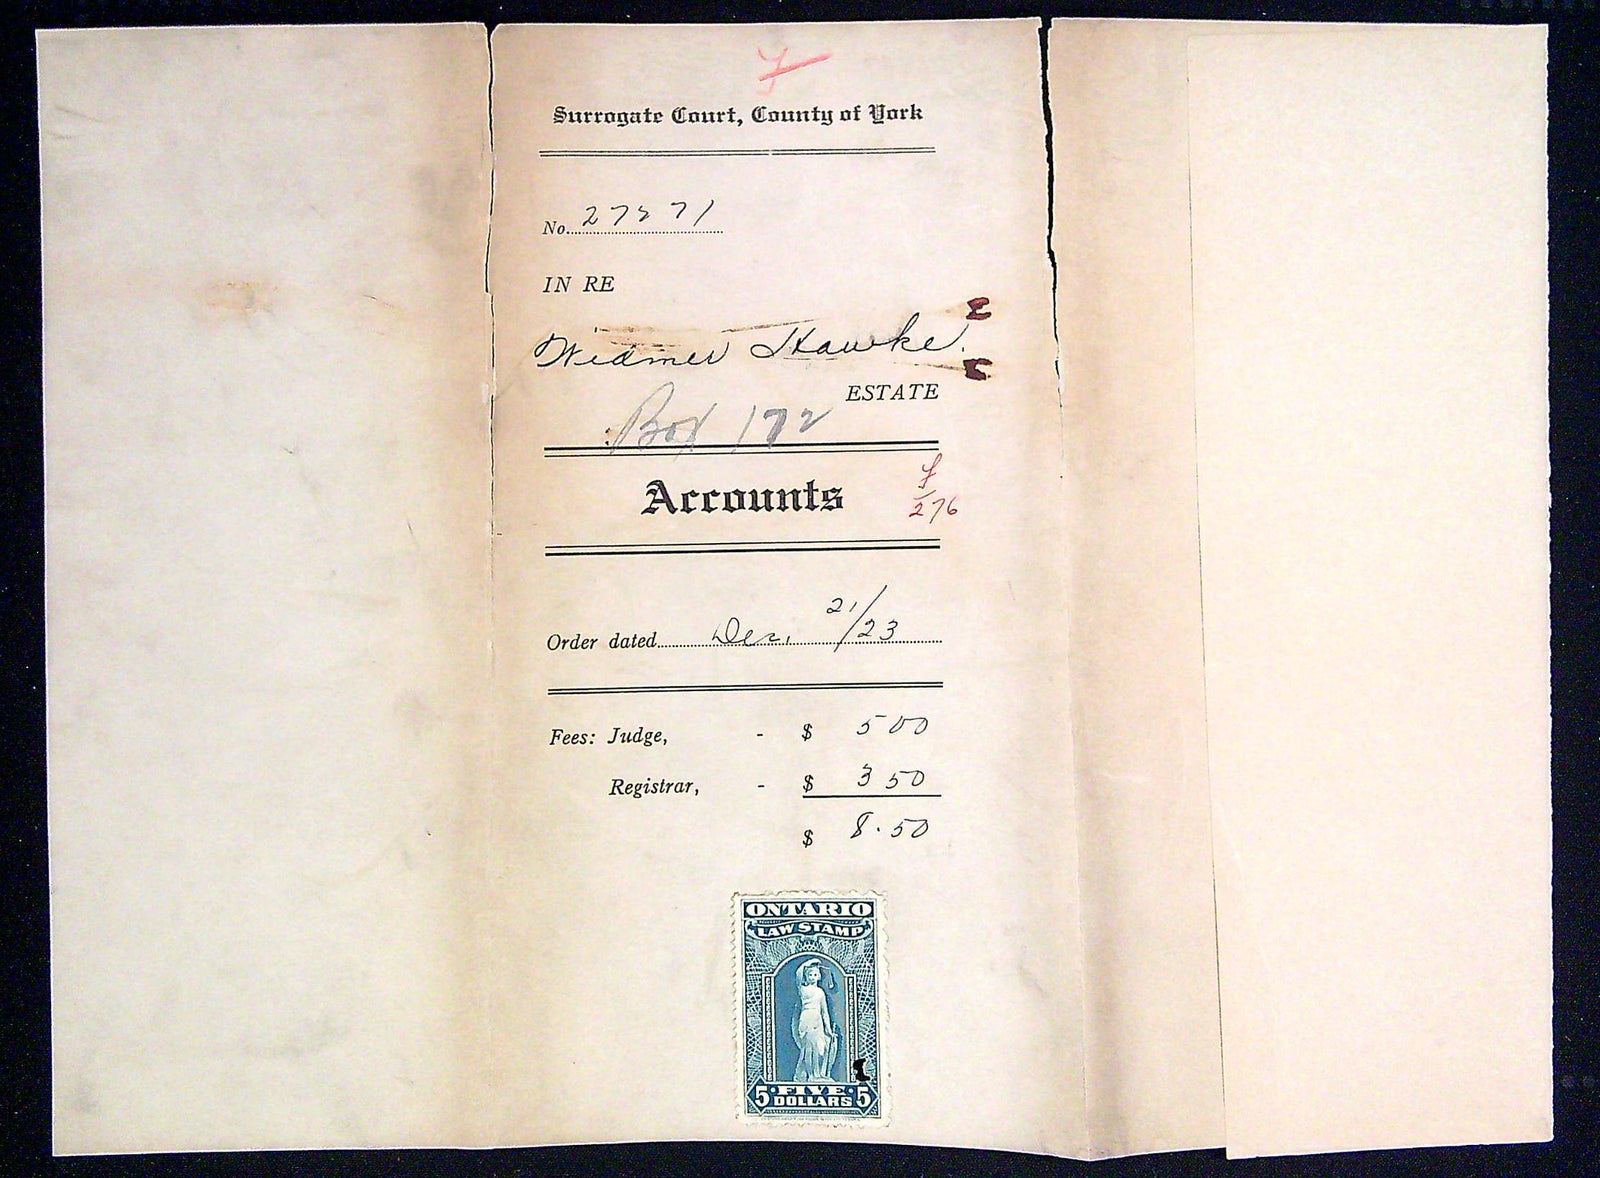 Surrogate Court, County of York
No. 27571
IN RE
Widmer Hawke.
ESTATE
Box 172
Accounts
276
Order dated Dec. 21/23
Fees: Judge, - $ 5 00
Registrar, - $ 3 50
$ 8.50
ONTARIO
LAW STAMP
5 FIVE 5
DOLLARS